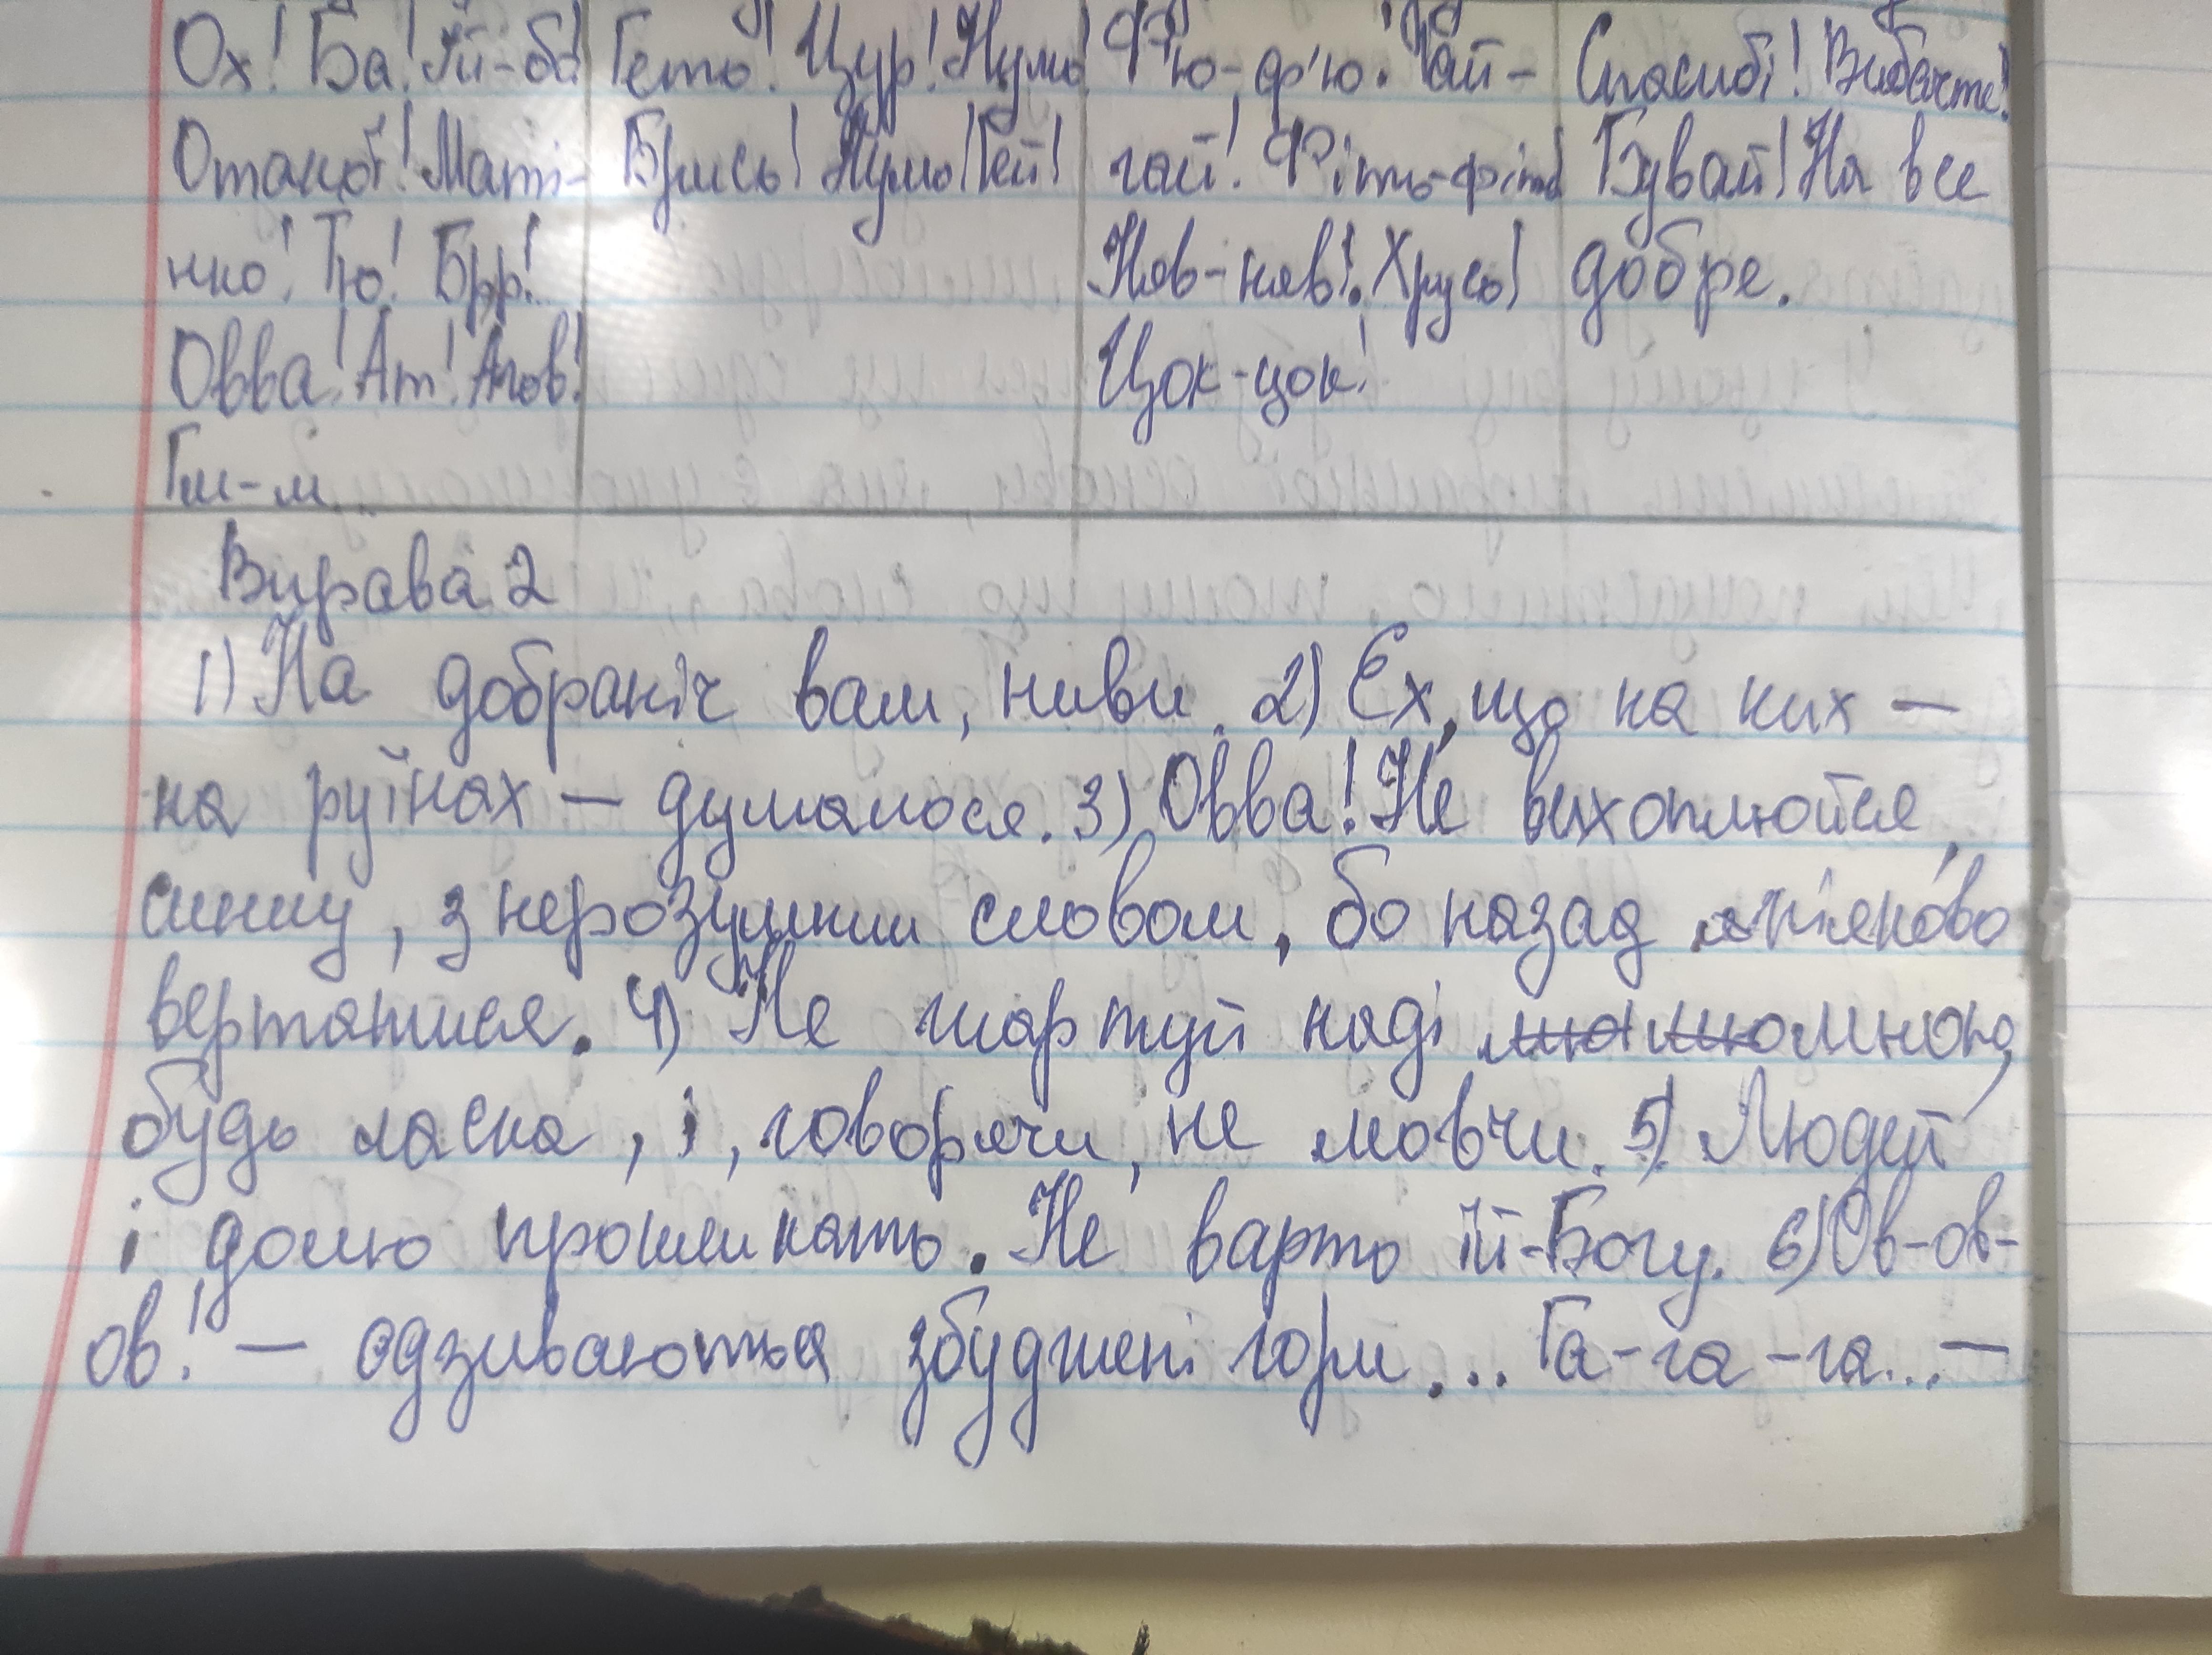 Ох! Ба! Їй-бо! Геть! Цур! Нумо! Ф'ю-ф'ю. Гай- Спасибі! Вибачте!
Отакої! Маті- Брись! Нумо! Гей! гай! Фіть-фіть! Бувай! На все
нко! Тю! Брр! Няв-няв! Хрусь! добре.
Овва! Ат! Агов! Цок-цок!
Гм-м
Вправа 2
1) На добраніч вам, ниви. 2) Ех, що на них —
на руїнах — думалося. 3) Овва! Не вихоплюйся,
синку, з нерозумним словом, бо назад ніяково
вертатися. 4) Не жартуй наді мною,
будь ласка, і, говорячи, не мовчи. 5) Людей
і долю проклинать. Не варто їй-Богу. 6) Ов-ов-
ов! — одзиваються збуджені гори... Га-га-га... —